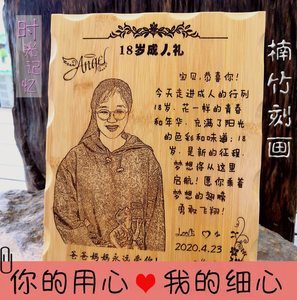 时光记忆
楠竹刻画
18岁成人礼
Angel
宝贝,恭喜你!
今天走进成人的行列
18岁,花一样的青春
和年华,充满了阳光
的色彩和味道;18
岁,是新的征程,
梦想将从这里
启航!愿你乘着
梦想的翅膀
勇敢飞翔!
Look
2020.4.23
爸爸妈妈永远爱你!
你的用心❤我的细心